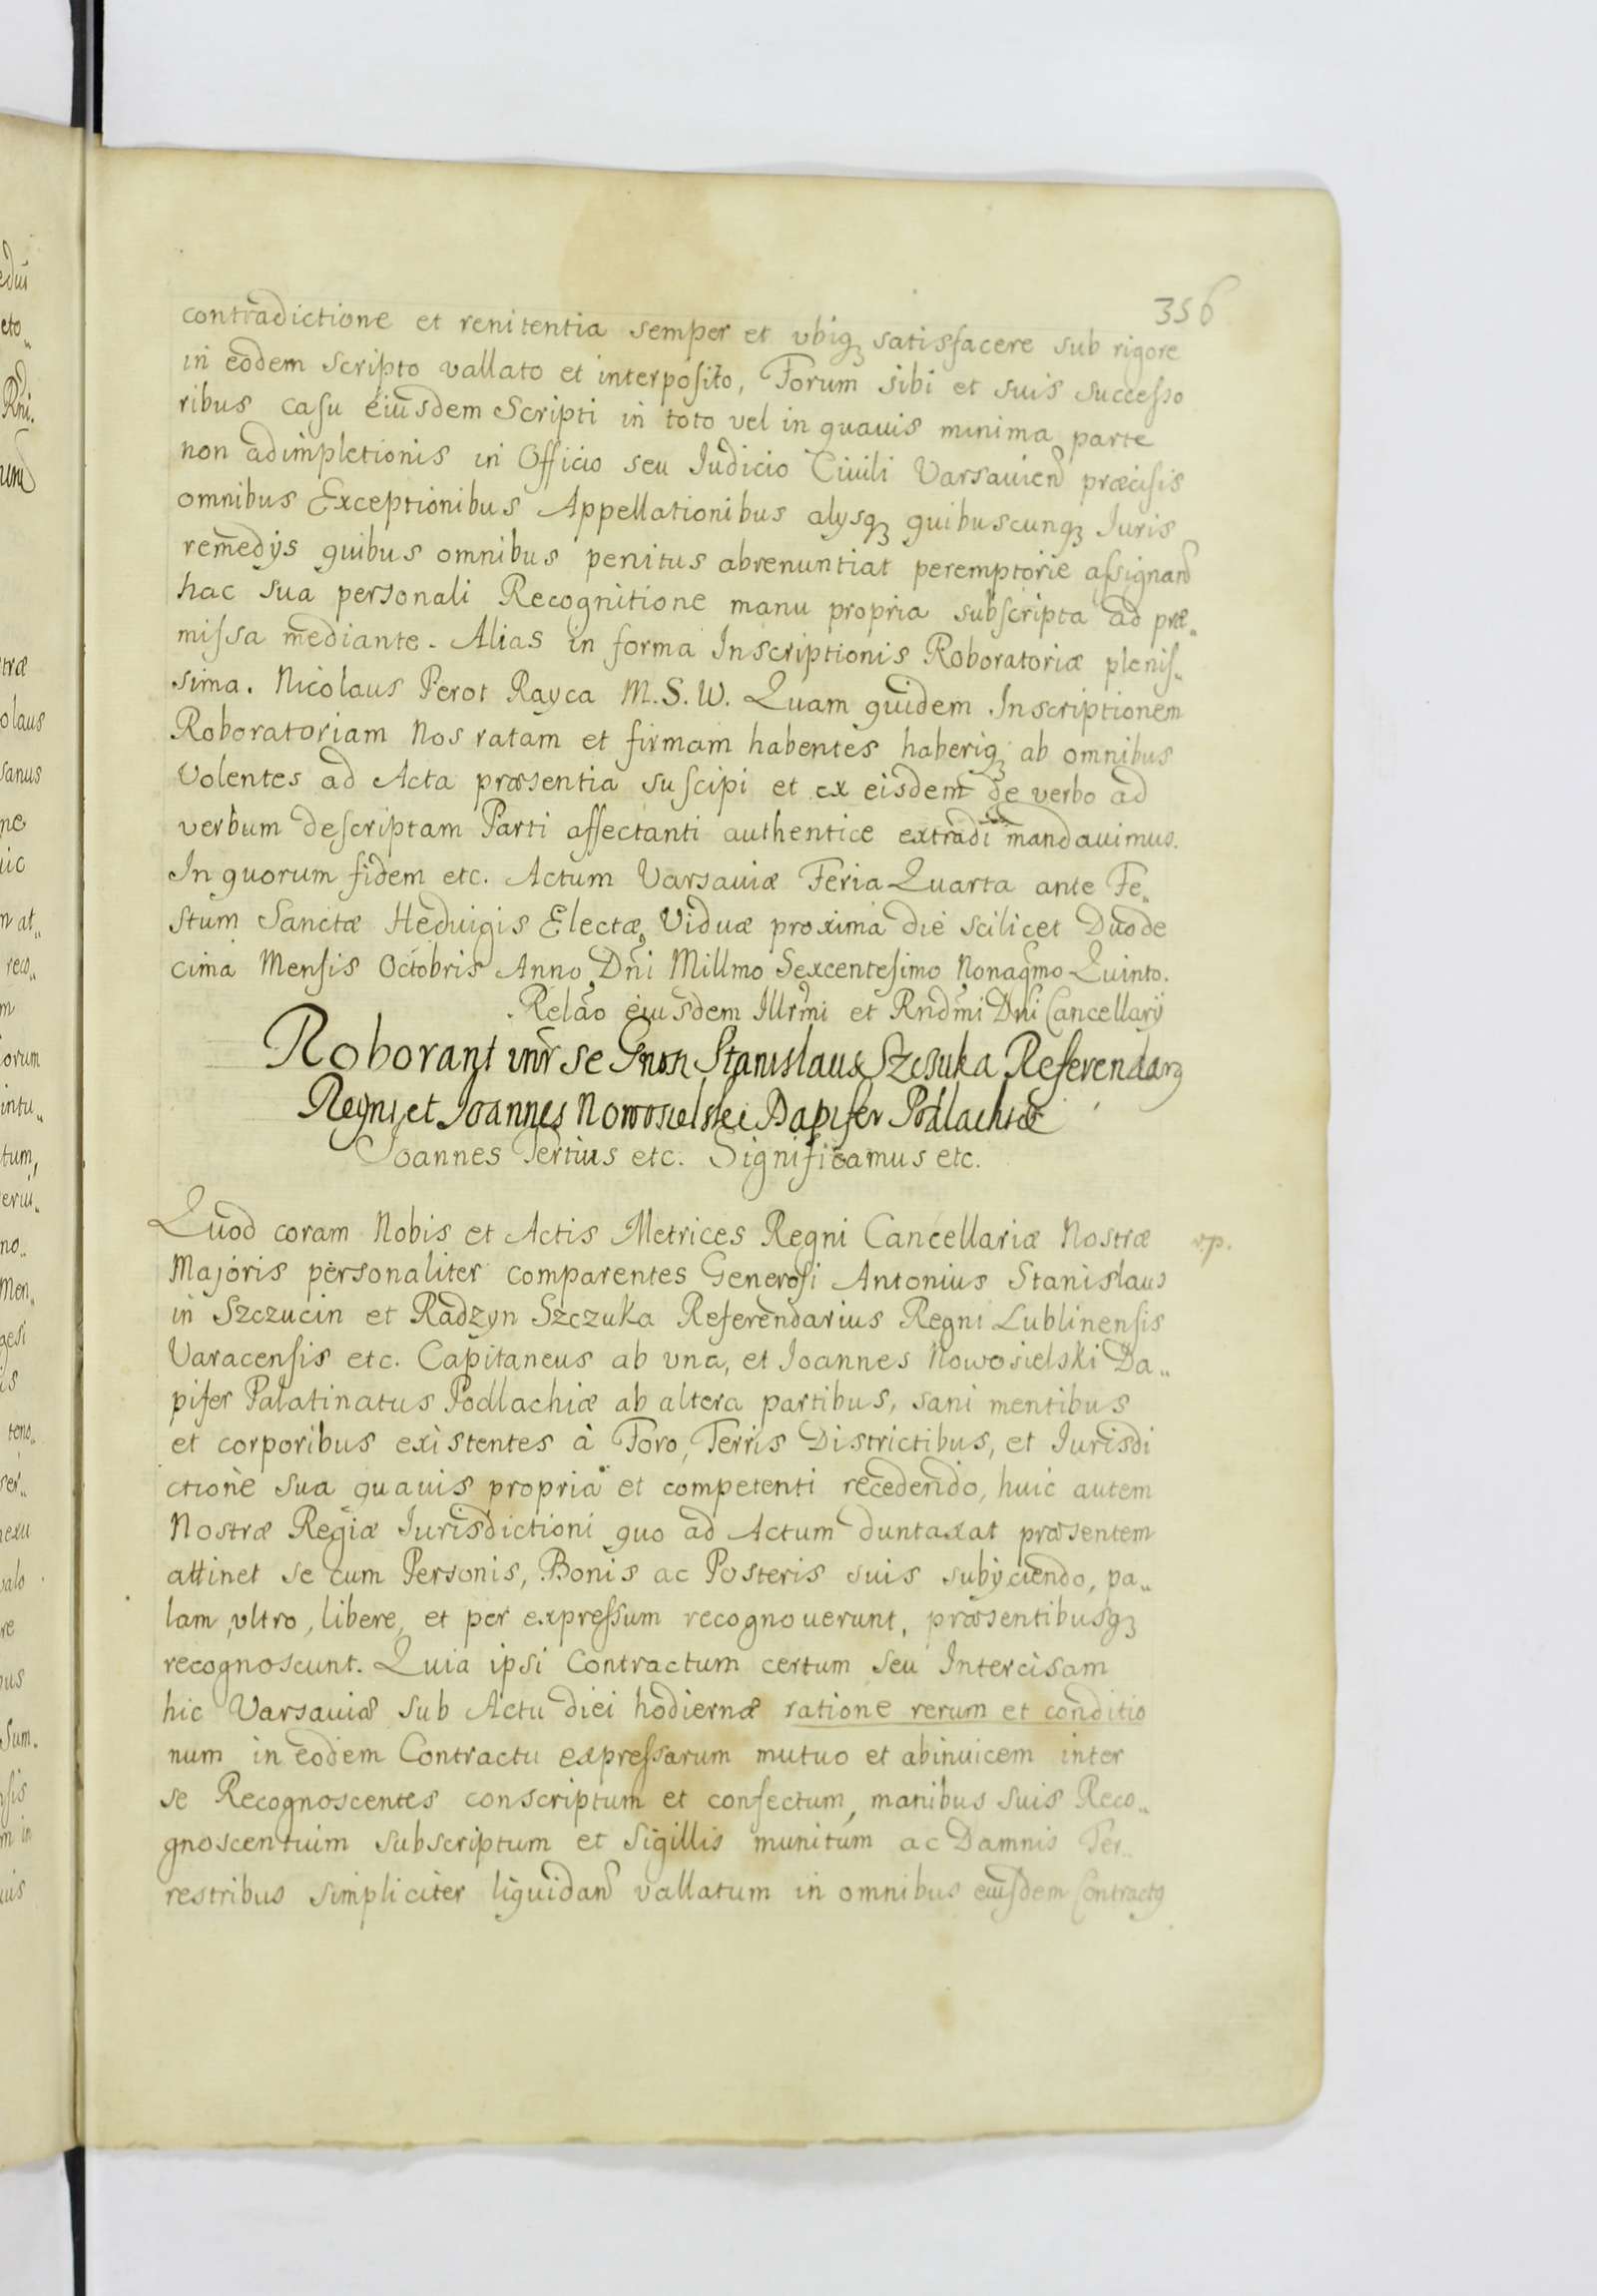 356
contradictione et renitentia semper et vbiq3 satisfacere sub rigore
in eodem scripto vallato et interposito, Forum sibi et suis successo
ribus casu eiusdem Scripti in toto vel in quauis minima parte
non adimpletionis in Officio seu Iudicio Ciuili Varsauien præcisis
omnibus Exceptionibus Appellationibus alysq3 quibuscunq3 Iuris
remedys quibus omnibus penitus abrenuntiat peremptorie assignand
hac sua personali Recognitione manu propria subscripta ad præ„
missa mediante. Alias in forma Inscriptionis Roboratoriæ plenis„
sima. Nicolaus Perot Rayca M.S.W. Quam quidem Inscriptionem
Roboratoriam Nos ratam et firmam habentes haberiq3 ab omnibus
Volentes ad Acta præsentia suscipi et ex eisdem de verbo ad
verbum descriptam Parti affectanti authentice extradi mandauimus.
In quorum fidem etc. Actum Varsauiæ Feria Quarta ante Fe„
stum Sanctæ Heduigis Electæ Viduæ proxima die scilicet Duode
cima Mensis Octobris Anno Dni Millmo Sexcentesimo Nonagmo Quinto.
Relao eiusdem Illrmi et Rndmi Dni Cancellary
Roborant inr se Gnosi Stanislaus Szczuka Referendarg
Regni et Joannes Nowosielski Dapifer Podlachiæ
Joannes Tertius etc. Significamus etc.
Quod coram Nobis et Actis Metrices Regni Cancellariæ Nostræ
Majoris personaliter comparentes Generosi Antonius Stanislaus
in Szczucin et Radzyn Szczuka Referendarius Regni Lublinensis
Varacensis etc. Capitaneus ab vna, et Joannes Nowosielski Da„
pifer Palatinatus Podlachiæ ab altera partibus, sani mentibus
et corporibus existentes à Foro, Terris Districtibus, et Iurisdi
ctione sua quauis propria et competenti recedendo, huic autem
Nostræ Regiæ Iurisdictioni quo ad Actum duntaxat præsentem
attinet se cum Personis, Bonis ac Posteris suis subyciendo, pa„
lam, vltro, libere, et per expressum recognouerunt, præsentibusq3
recognoscunt. Quia ipsi Contractum certum seu Intercisam
hic Varsauiæ sub Actu diei hodiernæ ratione rerum et conditio
num in eodem Contractu expressarum mutuo et abinuicem inter
se Recognoscentes conscriptum et confectum, manibus suis Reco„
gnoscentium subscriptum et Sigillis munitum ac Damnis Ter„
restribus simpliciter liquidand vallatum in omnibus eiusdem Contractg